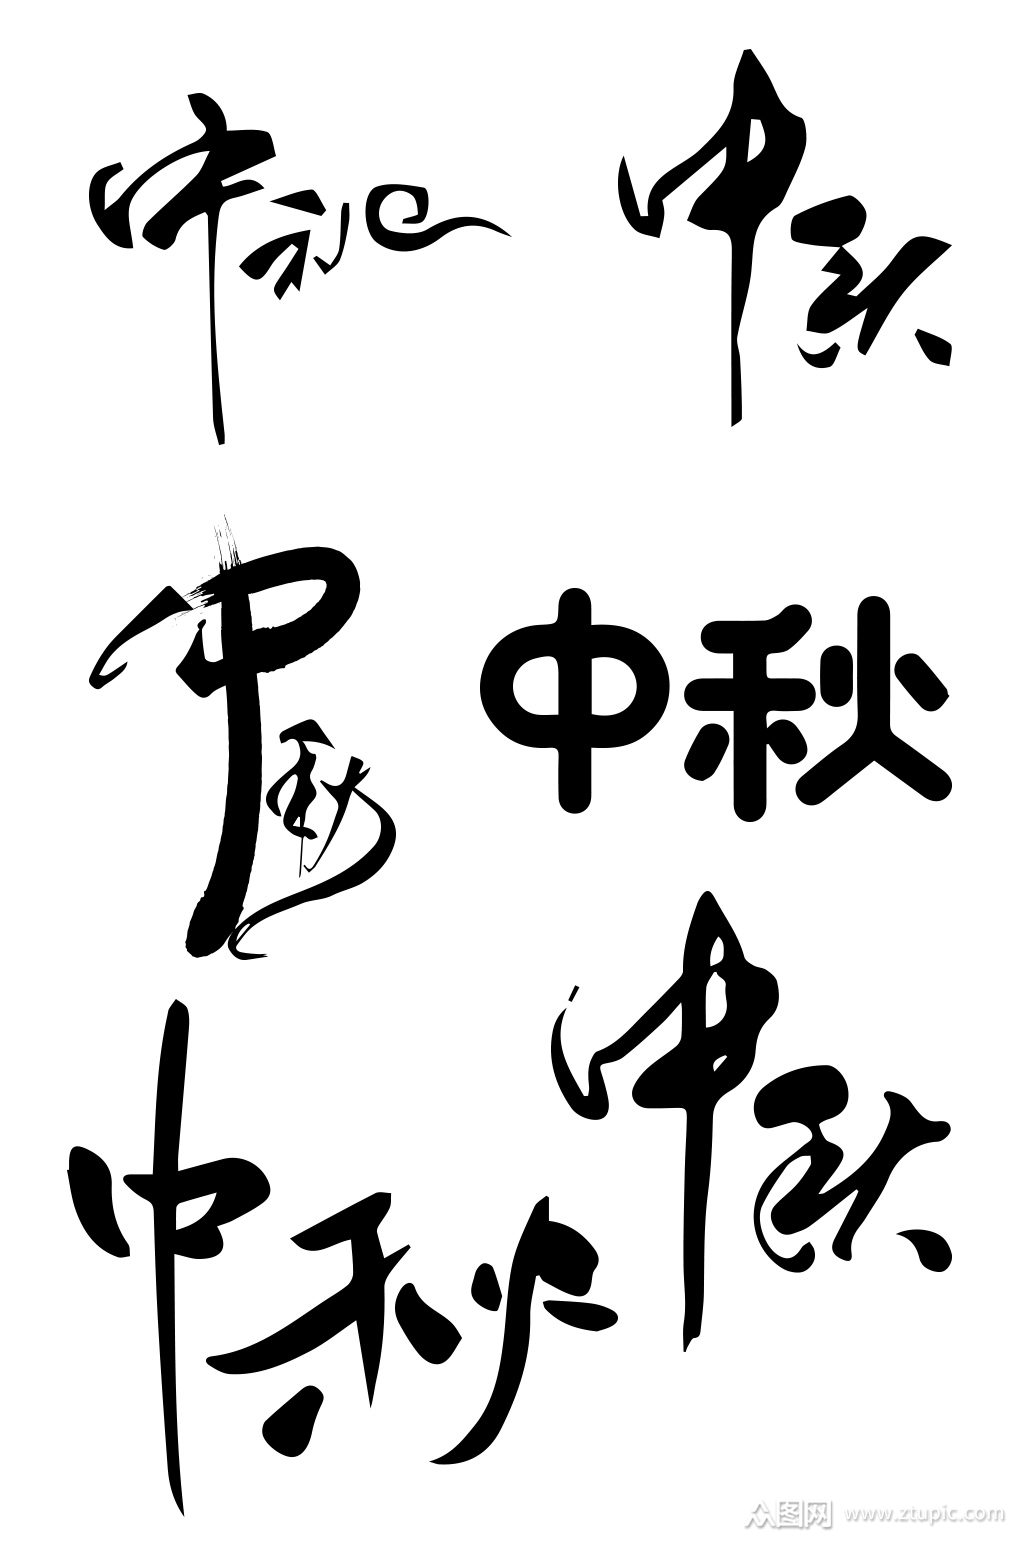 中秋
中秋
中秋
中秋
中秋
中秋
众图网 www.ztupic.com